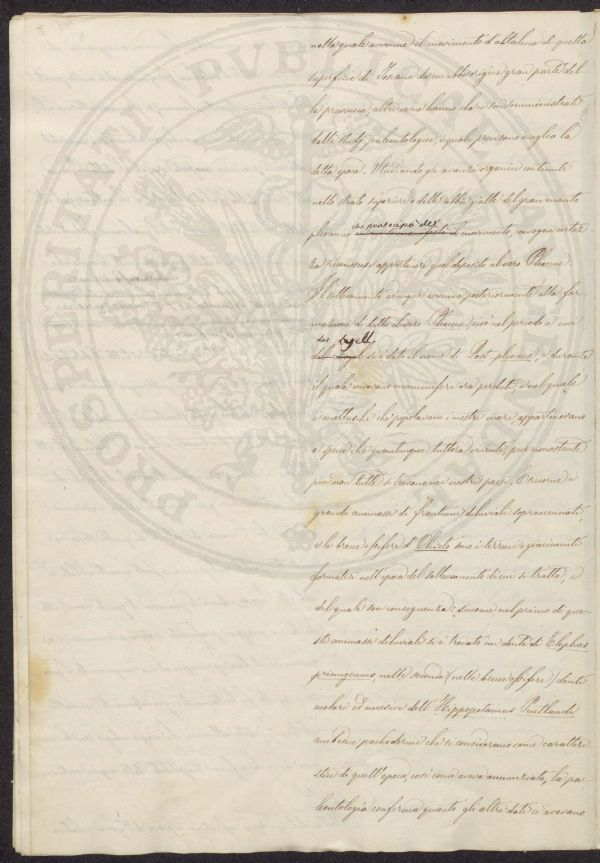 nella quale avvenne il movimento d'altalena di quella
superficie di Toscana da cui ebbe origine gran parte del-
la provincia, altri ve ne hanno che ci son somministrati
dalli study paleontologici, i quali precisano meglio la
detta epoca. Studiando gli avanzi organici contenuti
nello strato superiore o delle sabbie gialle del gran manto
pliocenico che partecipò del movimento, con ogni certez-
za riconoscesi appartenere quel deposito al vero Pliocene.
Il sollevamento adunque avvenne posteriormente alla for-
mazione di tutto il vero Pliocene, cioè nel periodo a cui
dal Lyell si è dato il nome di Post-pliocene, e durante
il quale vivevano mammiferi ora perduti, e nel quale
i molluschi che popolavano i nostri mari, appartenevano
a specie che quantunque tuttora viventi, pur nonostante
più non tutte si trovano nei nostri paesi. E siccome i
grandi ammassi di frantumi diluviali sopraccennati,
e le brecce ossifere d'Oliveto sono i terreni o giacimenti
formatisi nell'epoca del sollevamento di cui si tratta, e
del quale son conseguenza; siccome nel primo di que-
sti ammassi diluviali si è trovato un dente di Elephas
primigenius, nelle seconde (nelle brecce ossifere) denti
molari ed incisivi dell'Hippopotamus Pentlandi
ambedue pachidermi che si considerano come caratteri-
stici di quell'epoca, così come aveva annunziato, la pa-
leontologia conferma quanto gli altri dati ci avevano
PROSPERITATI PVBLICAE